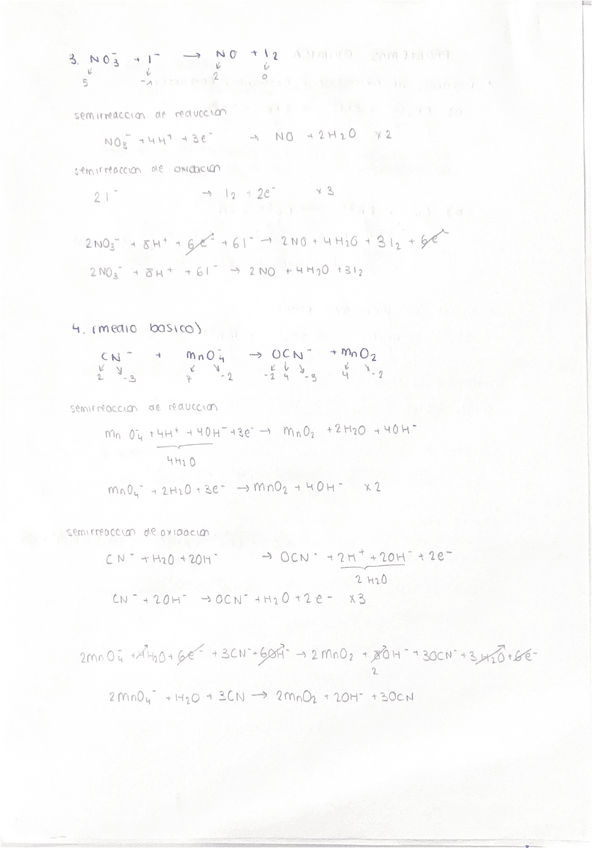 3. NO₃⁻ + I⁻ → NO + I₂
5 -1 2 0
semirreaccion de reduccion
NO₃⁻ + 4H⁺ + 3e⁻ → NO + 2H₂O x2
semirreaccion de oxidacion
2I⁻ → I₂ + 2e⁻ x3
2NO₃⁻ + 8H⁺ + 6e⁻ + 6I⁻ → 2NO + 4H₂O + 3I₂ + 6e⁻
2NO₃⁻ + 8H⁺ + 6I⁻ → 2NO + 4H₂O + 3I₂
4. (medio basico)
CN⁻ + MnO₄⁻ → OCN⁻ + MnO₂
2 -3 7 -2 -2 4 -3 4 -2
semirreaccion de reduccion
MnO₄⁻ + 4H⁺ + 4OH⁻ + 3e⁻ → MnO₂ + 2H₂O + 4OH⁻
4H₂O
MnO₄⁻ + 2H₂O + 3e⁻ → MnO₂ + 4OH⁻ x2
semirreaccion de oxidacion
CN⁻ + H₂O + 2OH⁻ → OCN⁻ + 2H⁺ + 2OH⁻ + 2e⁻
2H₂O
CN⁻ + 2OH⁻ → OCN⁻ + H₂O + 2e⁻ x3
2MnO₄⁻ + 4H₂O + 6e⁻ + 3CN⁻ + 6OH⁻ → 2MnO₂ + 8OH⁻ + 3OCN⁻ + 3H₂O + 6e⁻
2
2MnO₄⁻ + H₂O + 3CN → 2MnO₂ + 2OH⁻ + 3OCN